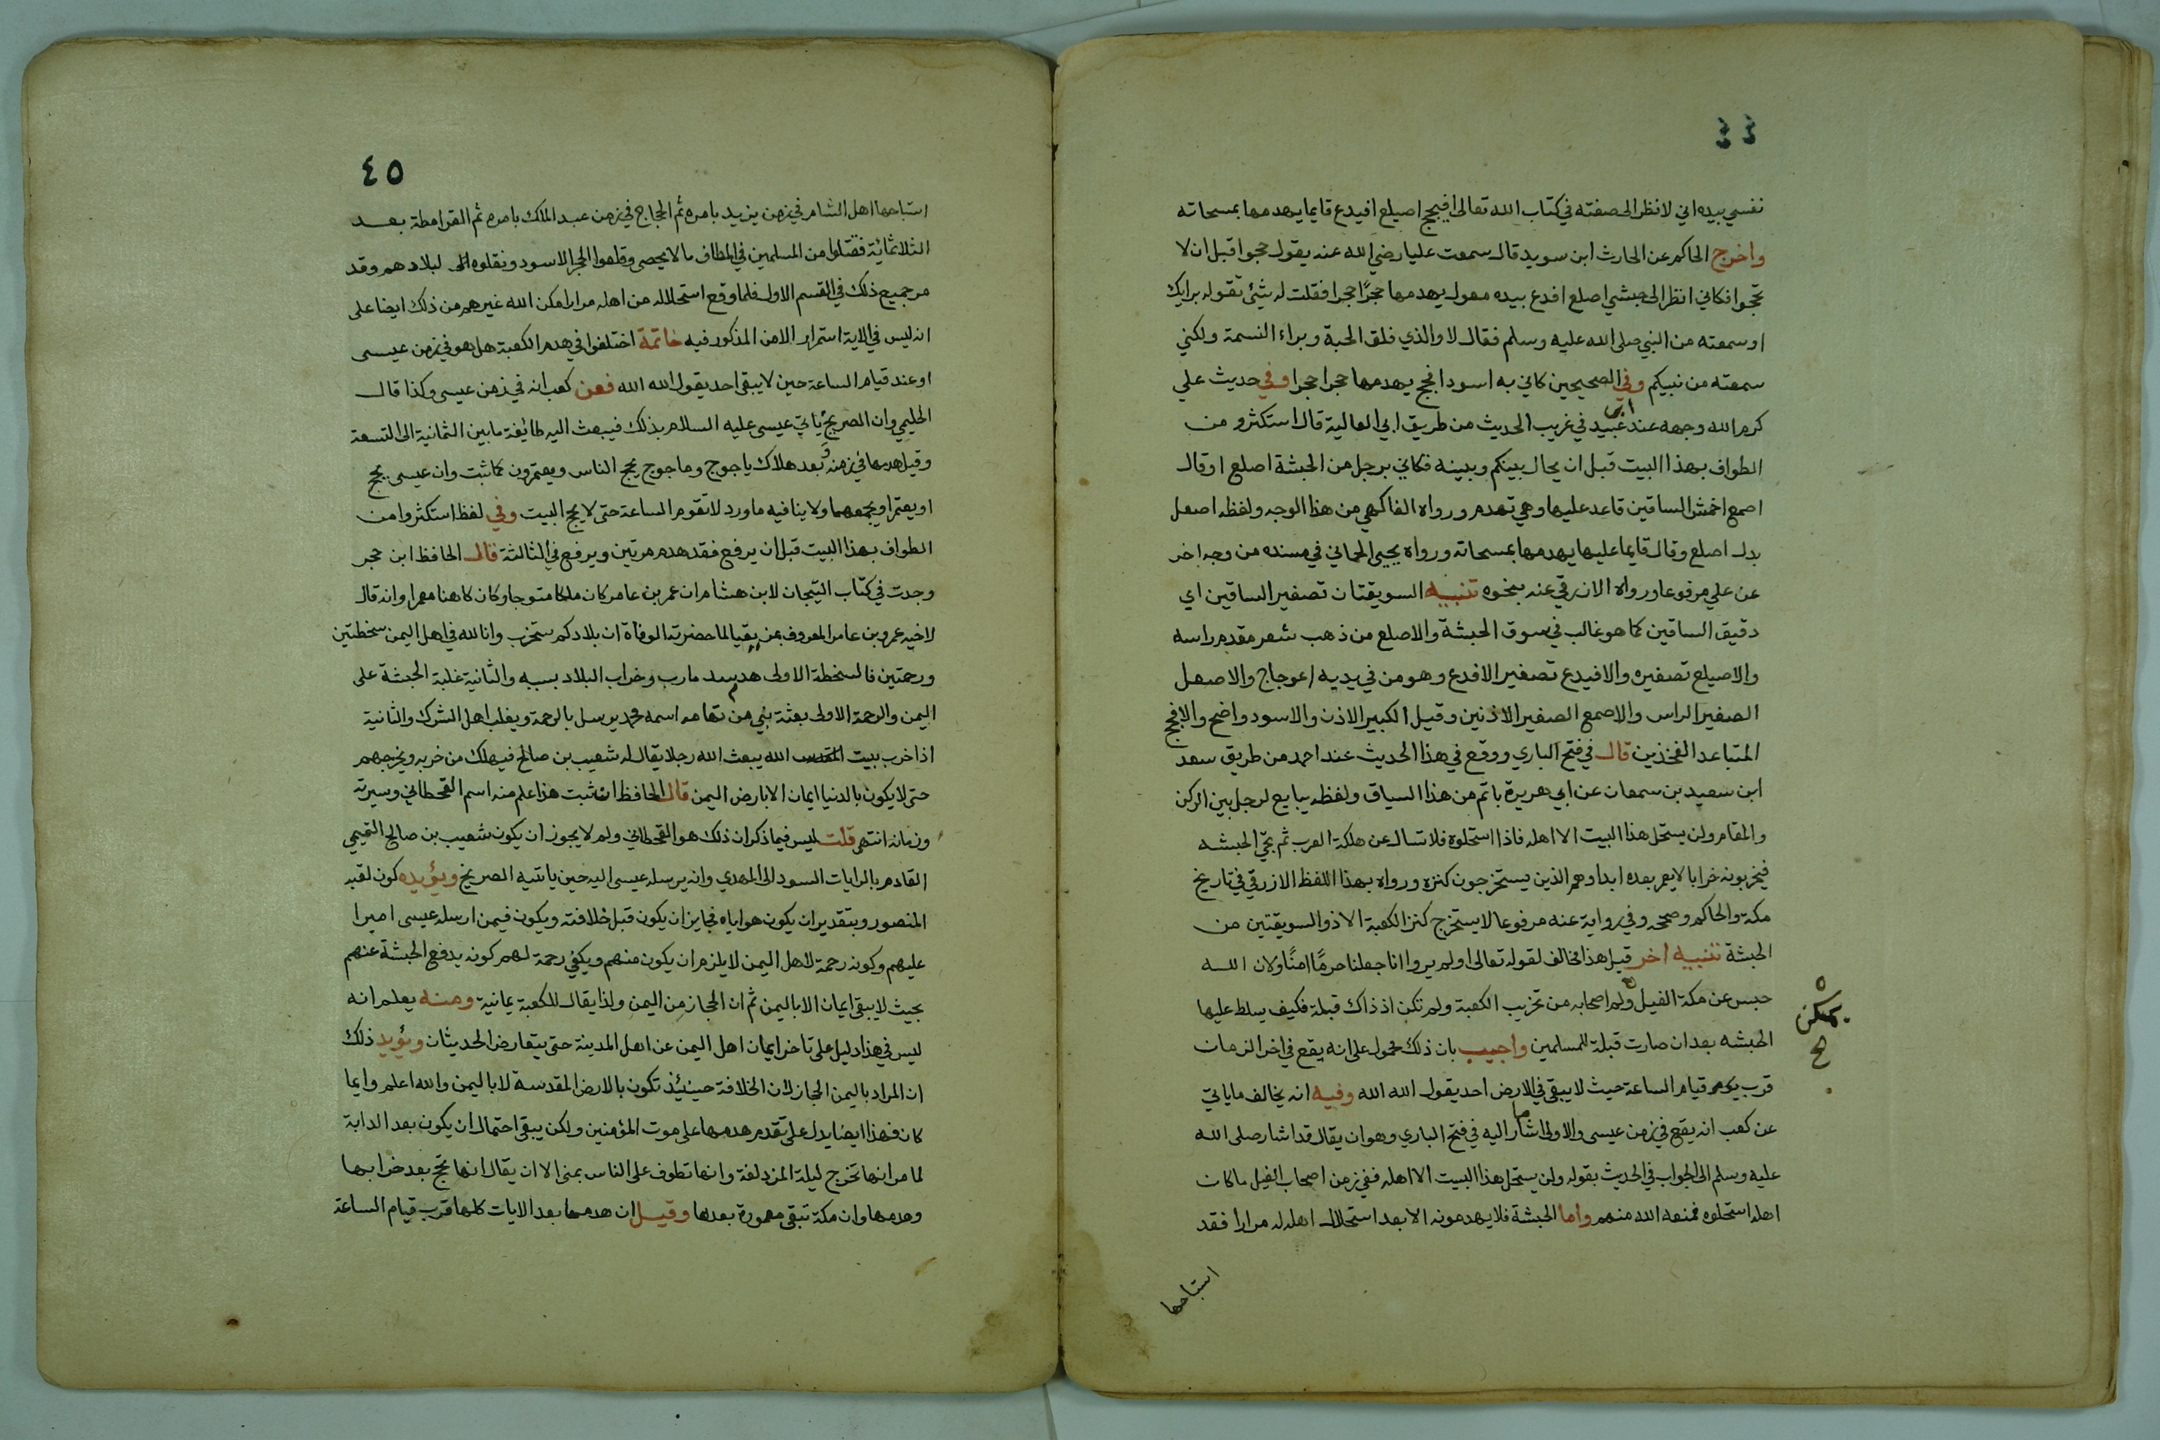 ٤٤
نفسي بيده اني لانظر الى صفته في كتاب الله تعالى افيحج اصيلع افيدع قايما يهدمها بمسحاته
واخرج الحاكم عن الحارث ابن سويد قال سمعت عليا رضي الله عنه يقول حجوا قبل ان لا
تحجوا فكاني انظر الى حبشي اصلع افدع بيده معول يهدمها حجرًا حجرا فقلت له شئ تقوله برايك
او سمعته من النبي صلى الله عليه وسلم فقال لا والذي فلق الحبة وبراء النسمة ولكني
سمعته من نبيكم وفي الصحيحين كاني به اسود افحج يهدمها حجرا حجرا وفي حديث علي
كرم الله وجهه عند ابي عبيد في غريب الحديث من طريق ابي العالية قال استكثرو من
الطواف بهذا البيت قبل ان يحال بينكم وبينه فكاني برجل من الحبشة اصلع او قال
اصمع اخمش الساقين قاعد عليها وهي تهدم ورواه الفاكهي من هذا الوجه ولفظه اصعل
بدل اصلع وقال قايما عليها يهدمها بمسحاته ورواه يحيى الحماني في مسنده من وجه اخر
عن علي مرفوعا ورواه الازرقي عنه بنحوه تنبيه السويقتان تصغير الساقين اي
دقيق الساقين كما هو غالب في سوق الحبشة والاصلع من ذهب شعر مقدم راسه
والاصيلع تصغيره والافيدع تصغير الافدع وهو من في يديه اعوجاج والاصعل
الصغير الراس والاصمع الصغير الاذنين وقيل الكبير الاذن والاسود واضح والافحج
المتباعد الفخذين قال في فتح الباري ووقع في هذا الحديث عند احمد من طريق سعد
ابن سعيد بن سمعان عن ابي هريرة باتم من هذا السياق ولفظه يبايع لرجل بين الركن
والمقام ولن يستحل هذا البيت الا اهله فاذا استحلوه فلا تسال عن هلكة العرب ثم تجي الحبشه
فيخربونه خرابا لا يعمر بعده ابدا وهم الذين يستخرجون كنزه ورواه بهذا اللفظ الازرقي في تاريخ
مكة والحاكم وصححه وفي رواية عنه مرفوعا لا يستخرج كنز الكعبة الا ذو السويقتين من
الحبشة تنبيه اخر قيل هذا مخالف لقوله تعالى اولم يروا انا جعلنا حرمًا امنًا ولان الله
حبس عن مكة الفيل ولم اصحابه من تخريب الكعبة ولم تكن اذ ذاك قبلة فكيف يسلط عليها
يمكن
صح
الحبشه بعد ان صارت قبلة للمسلمين واجيب بان ذلك محمول على انه يقع في اخر الزمان
قرب يوم قيام الساعة حيث لا يبقى في الارض احد يقول الله الله وفيه انه يخالف ما ياتي
عن كعب انه يقع في زمن عيسى والاولى ما اشار اليه في فتح الباري وهو ان يقال قد اشار صلى الله
عليه وسلم الى الجواب في الحديث بقوله ولن يستحل هذا البيت الا اهله ففي زمن اصحاب الفيل ما كان
اهله استحلوه فمنعه الله منهم واما الحبشة فلا يهدمونه الا بعد استحلال اهله له مرارا فقد
استباحها
٤٥
استباحها اهل الشام في زمن يزيد بامره ثم الحجاج في زمن عبد الملك بامره ثم القرامطة بعد
الثلاثمائة فقتلوا من المسلمين في المطاف ما لا يحصى وقلعوا الحجر الاسود ونقلوه الى لبلادهم وقد
مر جميع ذلك في القسم الاول فلما وقع استحلاله من اهله مرارا مكن الله غيرهم من ذلك ايضا على
انه ليس في الاية استمرار الامن المذكور فيه خاتمة اختلفوا في هدم الكعبة هل هو في زمن عيسى
او عند قيام الساعة حين لا يبقى احد يقول الله الله فعن كعب انه في زمن عيسى وكذا قال
الحليمي وان الصريخ يأتي عيسى عليه السلام بذلك فيبعث اليه طائفة ما بين الثمانية الى التسعة
وقيل هدمها في زمنه وبعد هلاك ياجوج وماجوج يحج الناس ويعتمرون كما ثبت وان عيسى يحج
او يعتمر او يجمعهما ولا ينافيه ما ورد لا تقوم الساعة حتى لا يحج البيت وفي لفظ استكثروا من
الطواف بهذا البيت قبل ان يرفع فقد هدم مرتين ويرفع في الثالثة قال الحافظ ابن حجر
وجدت في كتاب التيجان لابن هشام ان عمر بن عامر كان ملكا متوجا وكان كاهنا معمرا وانه قال
لاخيه عمرو بن عامر المعروف بمزيقيا لما حضرته الوفاة ان بلادكم ستخرب وان لله في اهل اليمن سخطتين
ورحمتين فالسخطة الاولى هدم سد مارب وخراب البلاد بسببه والثانية غلبة الحبشة على
اليمن والرحمة الاولى بعثة نبي من تهامه اسمه محمد يرسل بالرحمة ويغلب اهل الشرك والثانية
اذا خرب بيت الله يبعث الله رجلا يقال له شعيب بن صالح فيهلك من خربه ويخرجهم
حتى لا يكون بالدنيا ايمان الا بارض اليمن قال الحافظ ان ثبت هذا علم منه اسم القحطاني وسيرته
وزمانه انتهى قلت ليس فيما ذكر ان ذلك هو القحطاني ولم لا يجوز ان يكون شعيب بن صالح التميمي
القادم بالرايات السود الى المهدي وانه يرسله عيسى اليه حين ياتيه الصريخ ويؤيده كون لقبه
المنصور وبتقدير ان يكون هو اياه فجايز ان يكون قبل خلافته ويكون فيمن ارسله عيسى اميرا
عليهم وكونه رحمة لاهل اليمن لا يلزم ان يكون منهم ويكفي رحمة لهم كونه يدفع الحبشة عنهم
بحيث لا يبقى ايمان الا باليمن ثم ان الحجاز من اليمن ولذا يقال للكعبة يمانية ومنه يعلم انه
ليس في هذا دليل على تاخر ايمان اهل اليمن عن اهل المدينة حتى يتعارض الحديثان ويؤيد ذلك
ان المراد باليمن الحجاز لان الخلافة حينئذ تكون بالارض المقدسة لا باليمن والله اعلم وايما
كان فهذا ايضا يدل على تقدم هدمها على موت المؤمنين ولكن يبقى احتمال ان يكون بعد الدابة
لما مر انها تخرج ليلة المزدلفة وانها تطوف على الناس بمنى الا ان يقال انها تحج بعد خرابها
وهدمها وان مكة تبقى معمورة بعدها وقيل ان هدمها بعد الايات كلها قرب قيام الساعة